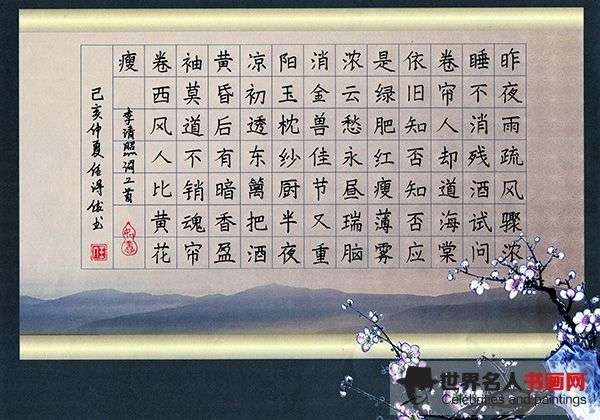 昨夜雨疏风骤浓
睡不消残酒试问
卷帘人却道海棠
依旧知否知否应
是绿肥红瘦薄雾
浓云愁永昼瑞脑
消金兽佳节又重
阳玉枕纱厨半夜
凉初透东篱把酒
黄昏后有暗香盈
袖莫道不销魂帘
卷西风人比黄花
瘦
李清照词二首
己亥仲夏任书
世界名人书画网
Celebrities and paintings